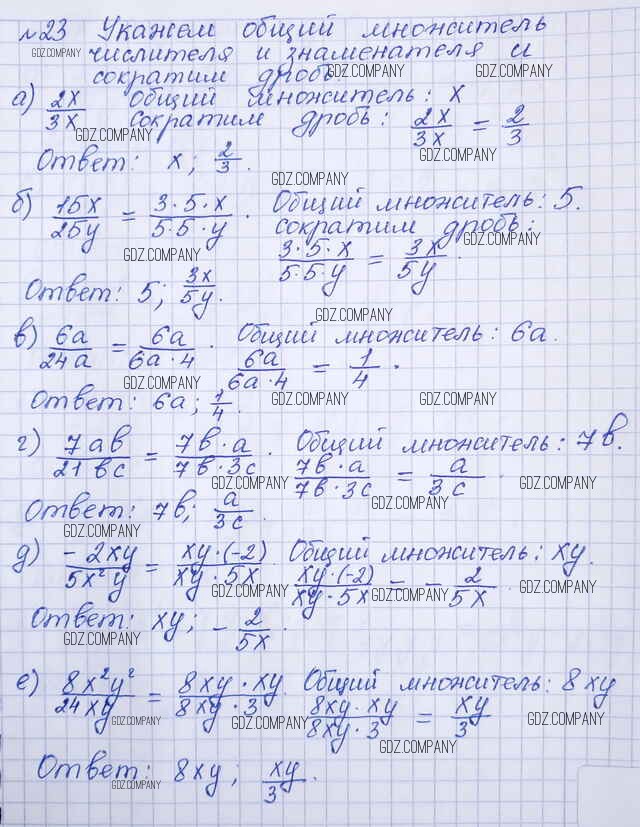 №23 Укажем общий множитель
GDZ.COMPANY числителя и знаменателя и
сократим дробь. GDZ.COMPANY GDZ.COMPANY
а) 2x/3x Общий множитель: x
сократим дробь: 2x/3x = 2/3
GDZ.COMPANY
Ответ: x; 2/3. GDZ.COMPANY
GDZ.COMPANY
б) 15x/25y = 3·5·x/5·5·y. Общий множитель: 5.
сократим дробь:
GDZ.COMPANY
GDZ.COMPANY 3·5·x/5·5·y = 3x/5y.
Ответ: 5; 3x/5y.
GDZ.COMPANY
в) 6a/24a = 6a/6a·4. Общий множитель: 6a.
6a/6a·4 = 1/4.
GDZ.COMPANY
Ответ: 6a; 1/4. GDZ.COMPANY GDZ.COMPANY
г) 7ab/21bc = 7b·a/7b·3c. Общий множитель: 7b.
7b·a/7b·3c = a/3c.
GDZ.COMPANY GDZ.COMPANY
Ответ: 7b; a/3c. GDZ.COMPANY
GDZ.COMPANY
д) -2xy/5x²y = xy·(-2)/xy·5x. Общий множитель: xy.
xy·(-2)/xy·5x = -2/5x.
GDZ.COMPANY GDZ.COMPANY GDZ.COMPANY
Ответ: xy; -2/5x.
GDZ.COMPANY
е) 8x²y²/24xy = 8xy·xy/8xy·3. Общий множитель: 8xy
8xy·xy/8xy·3 = xy/3
GDZ.COMPANY GDZ.COMPANY GDZ.COMPANY
GDZ.COMPANY
Ответ: 8xy; xy/3.
GDZ.COMPANY